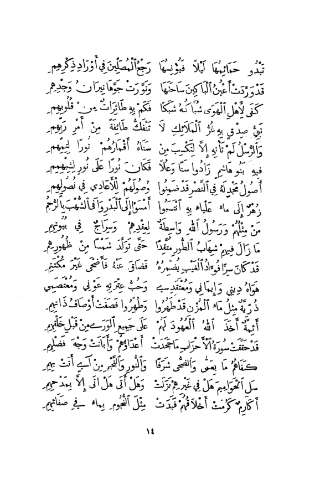 تبدو حمائمها ليلا فيؤنسها رجع المصلين في أوراد ذكرهم
قد وردت أعين الباكين ساحتها ونورت جوها نيران وجدهم
كفى لأهل الهوى شباكه شبكا فكم به طائرات من قلوبهم
نبي صدق به غر الملائك لا تنفك طائفة من أمر ربهم
والرسل لم تأته إلا لتكسب من سناه أقمارهم نورا لتمهم
فيه بنو هاشم زادوا سنا وعلا فكان نورا على نور لشبههم
أصول مجد له في النصر قد ضمنوا وصولهم للأعادي في نصولهم
زهر إلى ماء علياء به انتسبوا أمسوا إلى البدر والشهب بالرحم
من مثلهم ورسول الله واسطة لعقدهم وسراج في بيوتهم
ما زال فيهم شهاب الطور متقدا حتى تولد شمسا من ظهورهم
قد كان سرا فؤاد الغيب يضمره فضاق عنه فأضحى غير مكتتم
هواه ديني وإيماني ومعتقدي وحب عترته عوني ومعتصمي
ذرية مثل ماء المزن قد طهروا وطهروا فصفت أوصاف ذاتهم
أئمة أخذ الله العهود لهم على جميع الورى من قبل خلقهم
قد حققت سورة الأحزاب ما جحدت أعداؤهم وأبانت وجه فضلهم
كفاهم ما بعمى والضحى شرفا والنور والنجم من آي أتت بهم
سل الحواميم هل في غيرهم نزلت وهل أتى هل أتى إلا بمدحهم
أكارم كرمت أخلاقهم فبدت مثل النجوم بماء في صفائهم
١٤